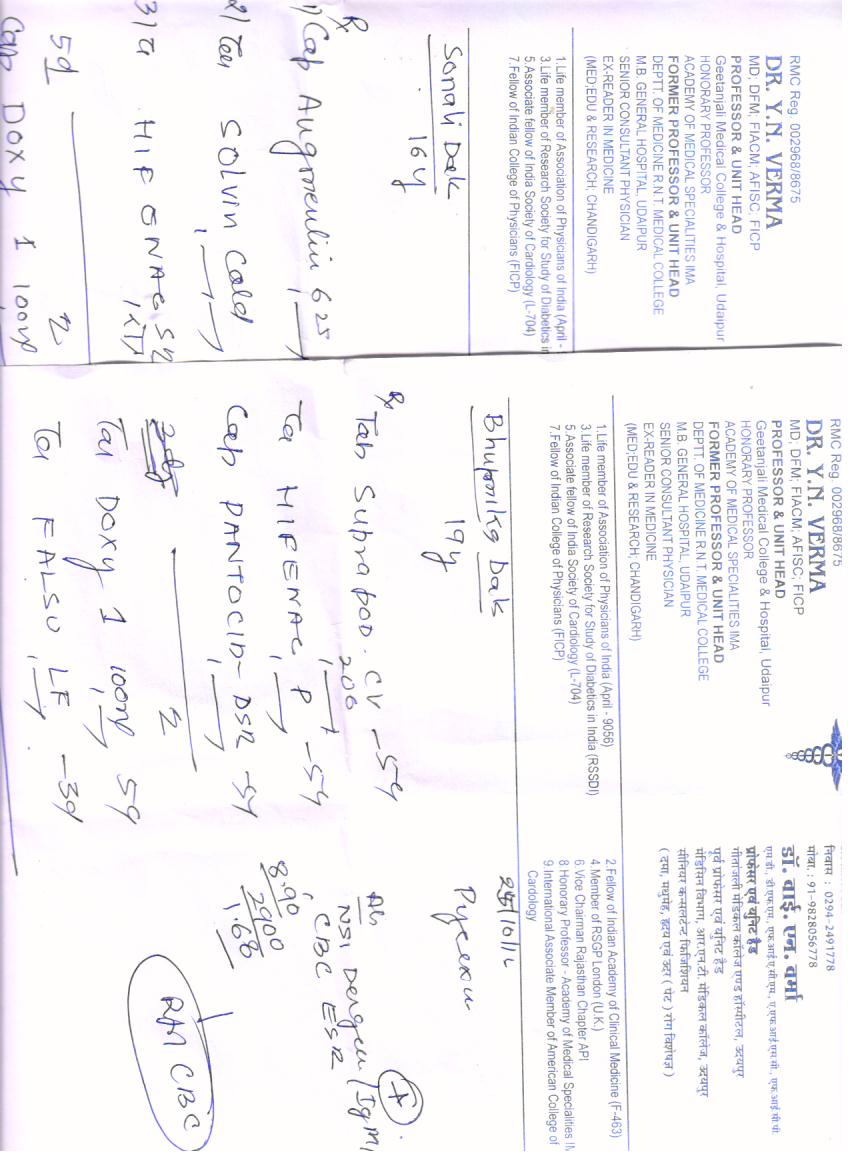 RMC Reg. 002968/8675
DR. Y.N. VERMA
MD; DFM; FIACM; AFISC; FICP
PROFESSOR & UNIT HEAD
Geetanjali Medical College & Hospital, Udaipur
HONORARY PROFESSOR
ACADEMY OF MEDICAL SPECIALITIES IMA
FORMER PROFESSOR & UNIT HEAD
DEPTT. OF MEDICINE R.N.T. MEDICAL COLLEGE
M.B. GENERAL HOSPITAL, UDAIPUR
SENIOR CONSULTANT PHYSICIAN
EX-READER IN MEDICINE
(MED;EDU & RESEARCH; CHANDIGARH)
1.Life member of Association of Physicians of India (April -
3.Life member of Research Society for Study of Diabetics in
5.Associate fellow of India Society of Cardiology (L-704)
7.Fellow of Indian College of Physicians (FICP)
Sonali Dak
16y
Rx
1) Cap Augmentin 625
2) Tab SOLVIN Cold
3) Ta HIFENAC SR
5d
2
Cap DOXY 1 100mg
RMC Reg. 002968/8675
DR. Y.N. VERMA
MD; DFM; FIACM; AFISC; FICP
PROFESSOR & UNIT HEAD
Geetanjali Medical College & Hospital, Udaipur
HONORARY PROFESSOR
ACADEMY OF MEDICAL SPECIALITIES IMA
FORMER PROFESSOR & UNIT HEAD
DEPTT. OF MEDICINE R.N.T. MEDICAL COLLEGE
M.B. GENERAL HOSPITAL, UDAIPUR
SENIOR CONSULTANT PHYSICIAN
EX-READER IN MEDICINE
(MED;EDU & RESEARCH; CHANDIGARH)
निवास : 0294-2491778
मोबा.: 91-9828056778
डॉ. वाई. एन. वर्मा
एम.डी., डी.एफ.एम, एफ.आई.ए.सी.एम, ए.एफ.आई.एस.सी., एफ.आई.सी.पी.
प्रोफेसर एवं यूनिट हैड
गीतांजली मेडिकल कॉलेज एण्ड हॉस्पीटल, उदयपुर
पूर्व प्रोफेसर एवं यूनिट हैड
मेडिसिन विभाग, आर.एन.टी. मेडिकल कॉलेज, उदयपुर
सीनियर कन्सलटेन्ट फिजिशियन
( दमा, मधुमेह, हृदय एवं उदर ( पेट ) रोग विशेषज्ञ )
1.Life member of Association of Physicians of India (April - 9056)
3.Life member of Research Society for Study of Diabetics in India (RSSDI)
5.Associate fellow of India Society of Cardiology (L-704)
7.Fellow of Indian College of Physicians (FICP)
2.Fellow of Indian Academy of Clinical Medicine (F-463)
4.Member of RSGP London (U.K.)
6 Vice Chairman Rajasthan Chapter API
8 Honorary Professor - Academy of Medical Specialities IM
9 International Associate Member of American College of
Cardology
Bhupnika Dak
19y
Pyrexia
Rx
Tab Suprapod. CV -5d
200
Ta HIFENAC P -5d
Cap PANTOCID-DSR -5d
2
Tab DOXY 1 100mg 5d
Ta FALSU LF -3d
NS1 Dengue / IgM
+
CBC ESR
8.90
2900
1.68
CBC